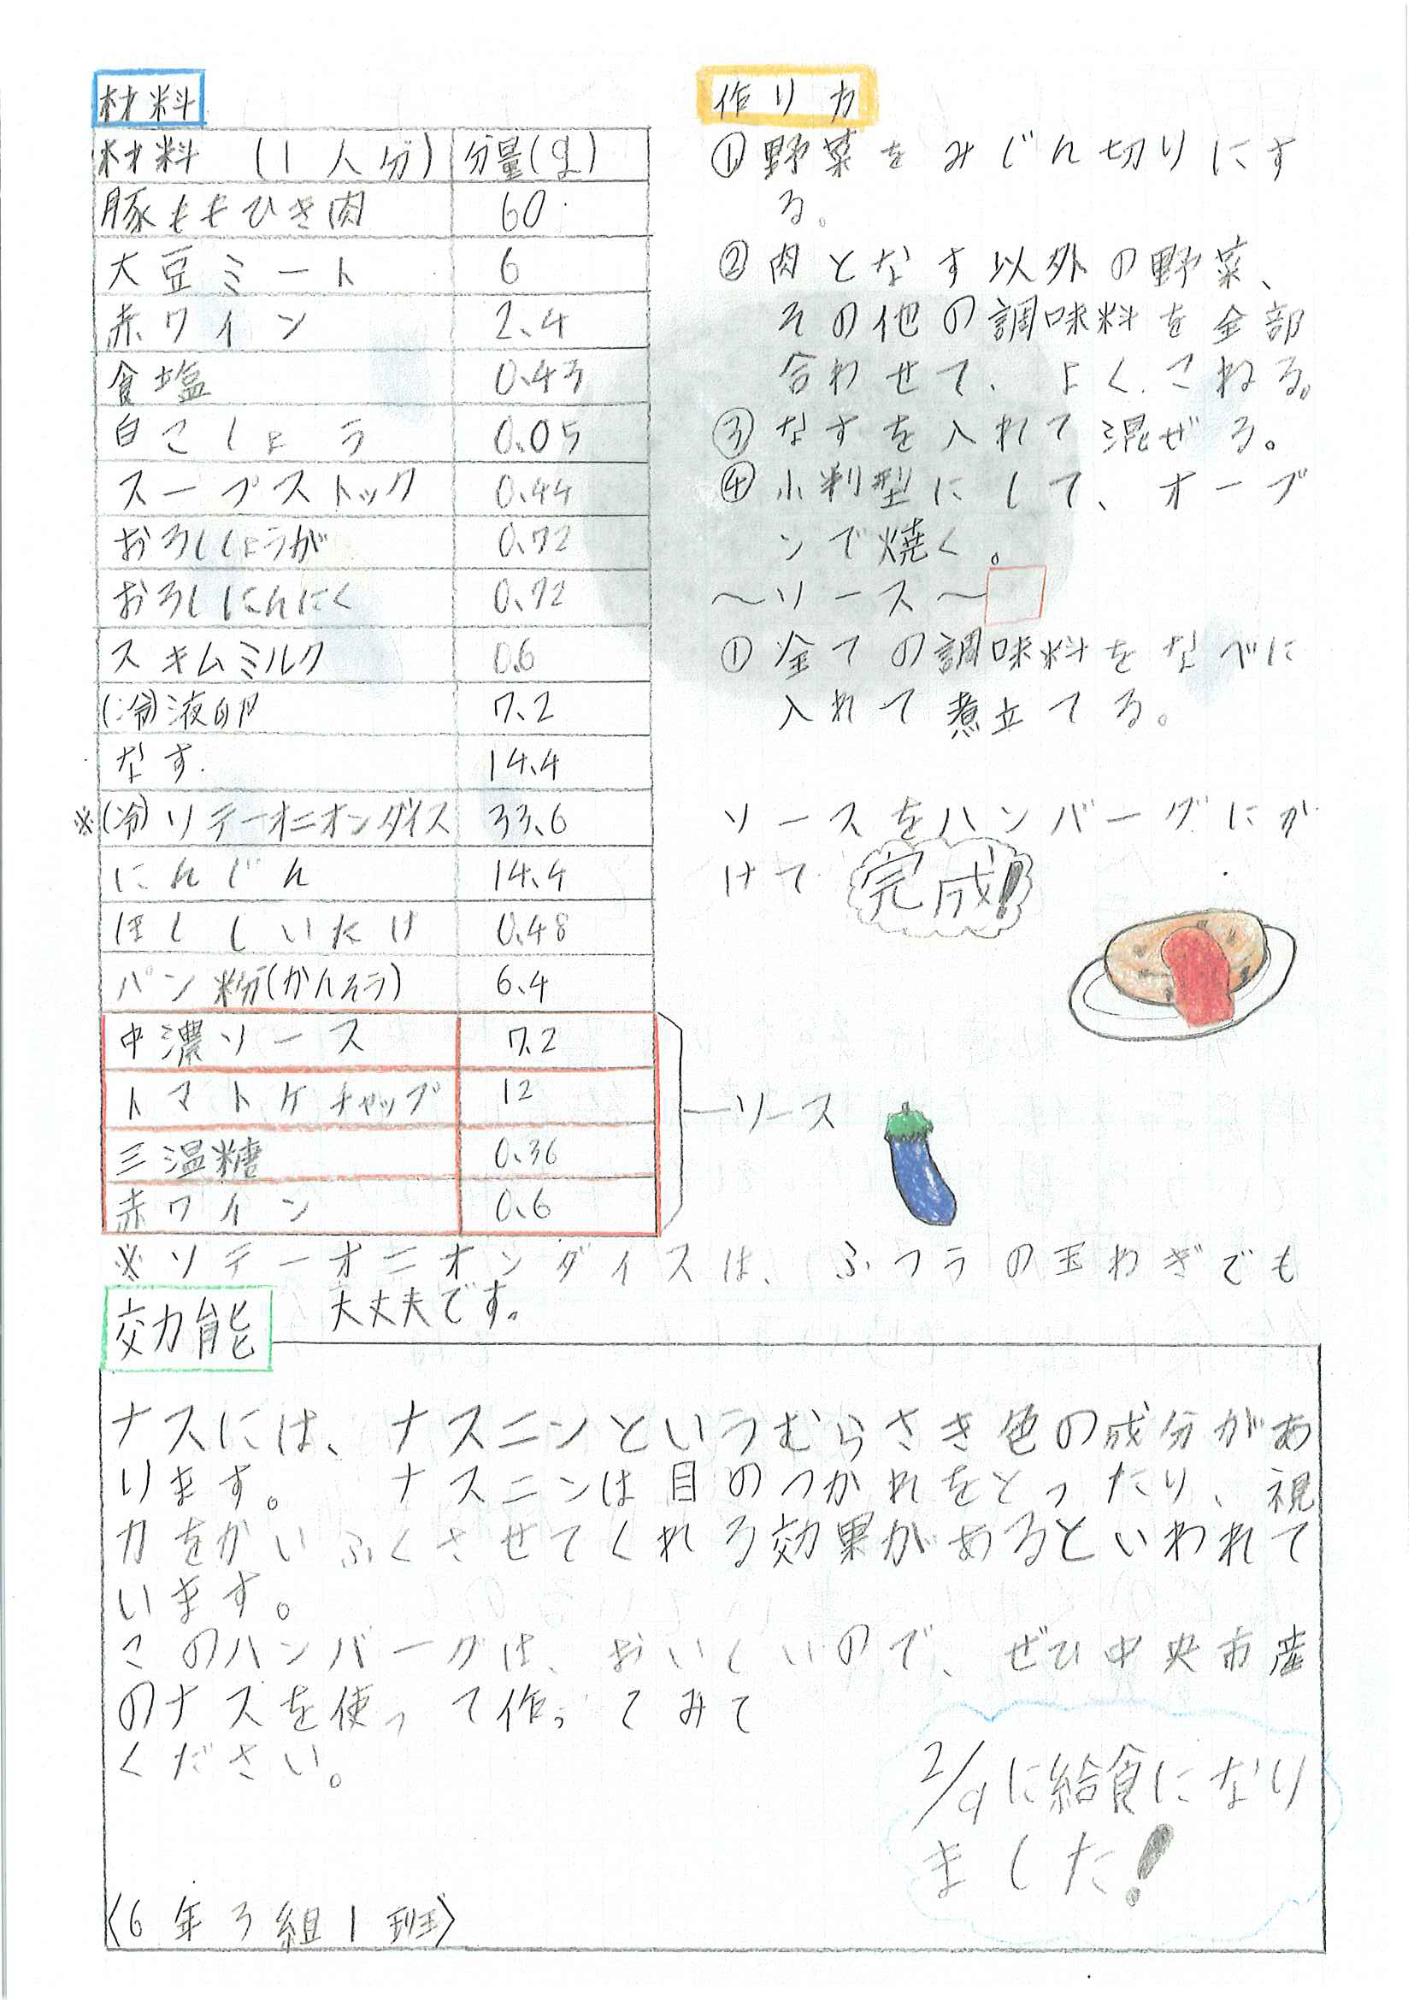 材料
材料 (1人分) 分量(g)
豚ももひき肉 60
大豆ミート 6
赤ワイン 2.4
食塩 0.43
白こしょう 0.05
スープストック 0.44
おろししょうが 0.72
おろしにんにく 0.72
スキムミルク 0.6
(冷)液卵 7.2
なす 14.4
※(冷)ソテーオニオンダイス 33.6
にんじん 14.4
ほししいたけ 0.48
パン粉(かんそう) 6.4
中濃ソース 7.2
トマトケチャップ 12
三温糖 0.36
赤ワイン 0.6
ソース
※ソテーオニオンダイスは、ふつうの玉ねぎでも
大丈夫です。
作り方
①野菜をみじん切りにす
る。
②肉となす以外の野菜、
その他の調味料を全部
合わせて、よくこねる。
③なすを入れて混ぜる。
④小判型にして、オーブ
ンで焼く。
～ソース～
①全ての調味料をなべに
入れて煮立てる。
ソースをハンバーグにか
けて完成!
効能
ナスには、ナスニンというむらさき色の成分があ
ります。 ナスニンは目のつかれをとったり、視
力をかいふくさせてくれる効果があるといわれて
います。
このハンバーグは、おいしいので、ぜひ中央市産
のナスを使って作ってみて
ください。
2/9に給食になり
ました!
〈6年3組1班〉